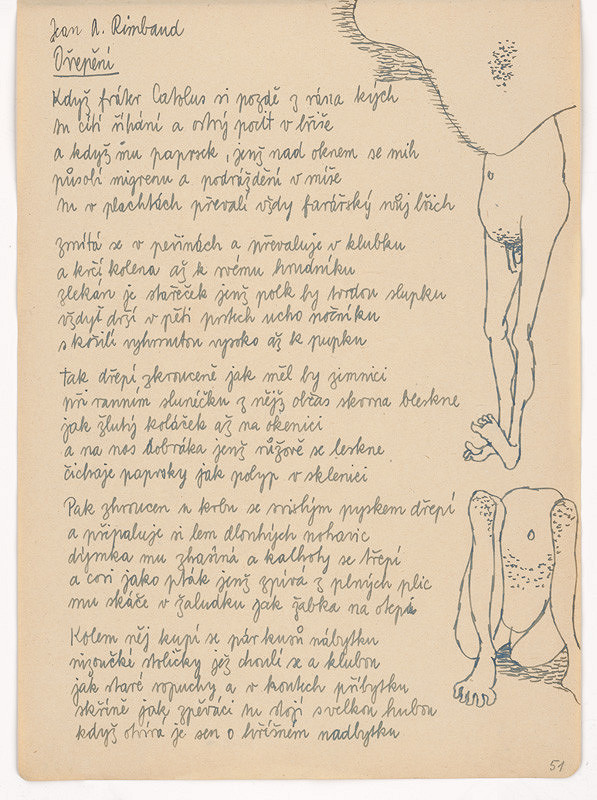 Jean A. Rimbaud
Dřepění
Když fráter Calotus si pozdě z rána kých
tu cítí říhání a ostrý pocit v břiše
a když mu paprsek, jenž nad oknem se mih
působí migrenu a podráždění v míše
tu v plachtách převalí vždy farářský svůj břich
zmítá se v peřinách a převaluje v klubku
a krčí kolena až k svému hrudníku
zlekán je stařeček jenž polk by tvrdou slupku
vždyť drží v pěti prstech ucho nočníku
s košilí vyhrnutou vysoko až k pupku
tak dřepí zkrouceně jak měl by zimnici
při ranním slunéčku z nějž občas skvrna bleskne
jak žlutý koláček až na okenici
a na nos dobráka jenž růžově se leskne
čichaje paprsky jak polyp v sklenici
Pak zhroucen u krbu se svislým pyskem dřepí
a připaluje si lem dlouhých nohavic
dýmka mu zhasíná a kalhoty se třepí
a cosi jako pták jenž zpívá z plných plic
mu skáče v žaludku jak žabka na
Kolem něj kupí se pár kusů nábytku
nizoučké stoličky jež choulí se a klubou
jak staré ropuchy a v koutech příbytku
skříně jak zpěváci tu stojí s velkou hubou
když otvírá je sen o hříšném nadbytku
51